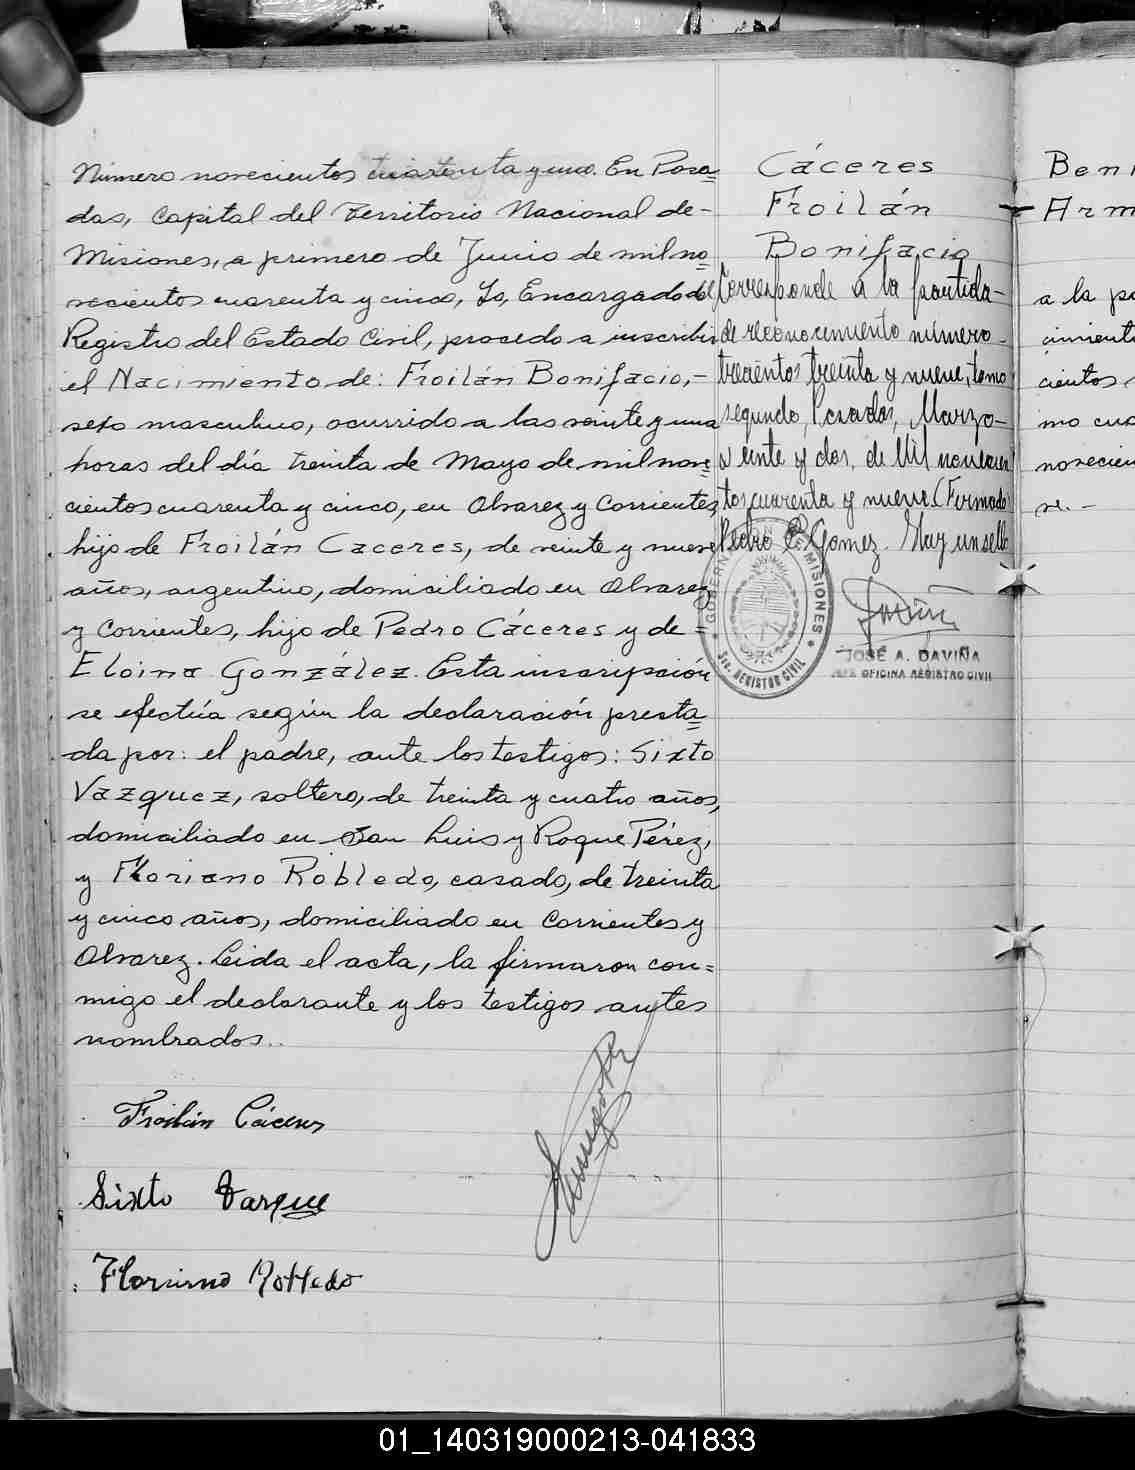 Número novecientos cuarenta y uno. En Posa=
das, Capital del Territorio Nacional de-
Misiones, a primero de Junio de mil no=
vecientos cuarenta y cinco, Yo, Encargado del
Registro del Estado Civil, procedo a inscribir
el Nacimiento de: Froilán Bonifacio,-
sexo masculino, ocurrido a las veinte y una
horas del día treinta de Mayo de mil nove=
cientos cuarenta y cinco, en Alvarez y Corrientes,
hijo de Froilán Caceres, de veinte y nueve
años, argentino, domiciliado en Alvarez
y Corrientes, hijo de Pedro Cáceres y de=
Eloina González. Esta inscripción
se efectúa según la declaración presta=
da por: el padre, ante los testigos: Sixto
Vazquez, soltero, de treinta y cuatro años,
domiciliado en San Luis y Roque Pérez,
y Floriano Robledo, casado, de treinta
y cinco años, domiciliado en Corrientes y
Alvarez. Leida el acta, la firmaron con=
migo el declarante y los testigos antes
nombrados..
Froilán Cáceres
Sixto Vasque
Floriano Robledo
Cáceres
Froilán
Bonifacio
Corresponde a la partida-
de reconocimiento número-
trecientos treinta y nueve, tomo
segundo, Posadas, Marzo-
veinte y dos, de Mil novecien
tos cuarenta y nueve (Firmado)
Pedro C. Gomez. Hay un sello
GOBERNACION DE MISIONES
Sec. REGISTRO CIVIL
JOSÉ A. DAVIÑA
JEFE OFICINA REGISTRO CIVIL
Boni
Arm
a la pa
cimiento
cientos
mo cua
novecien
ve.-
01_140319000213-041833